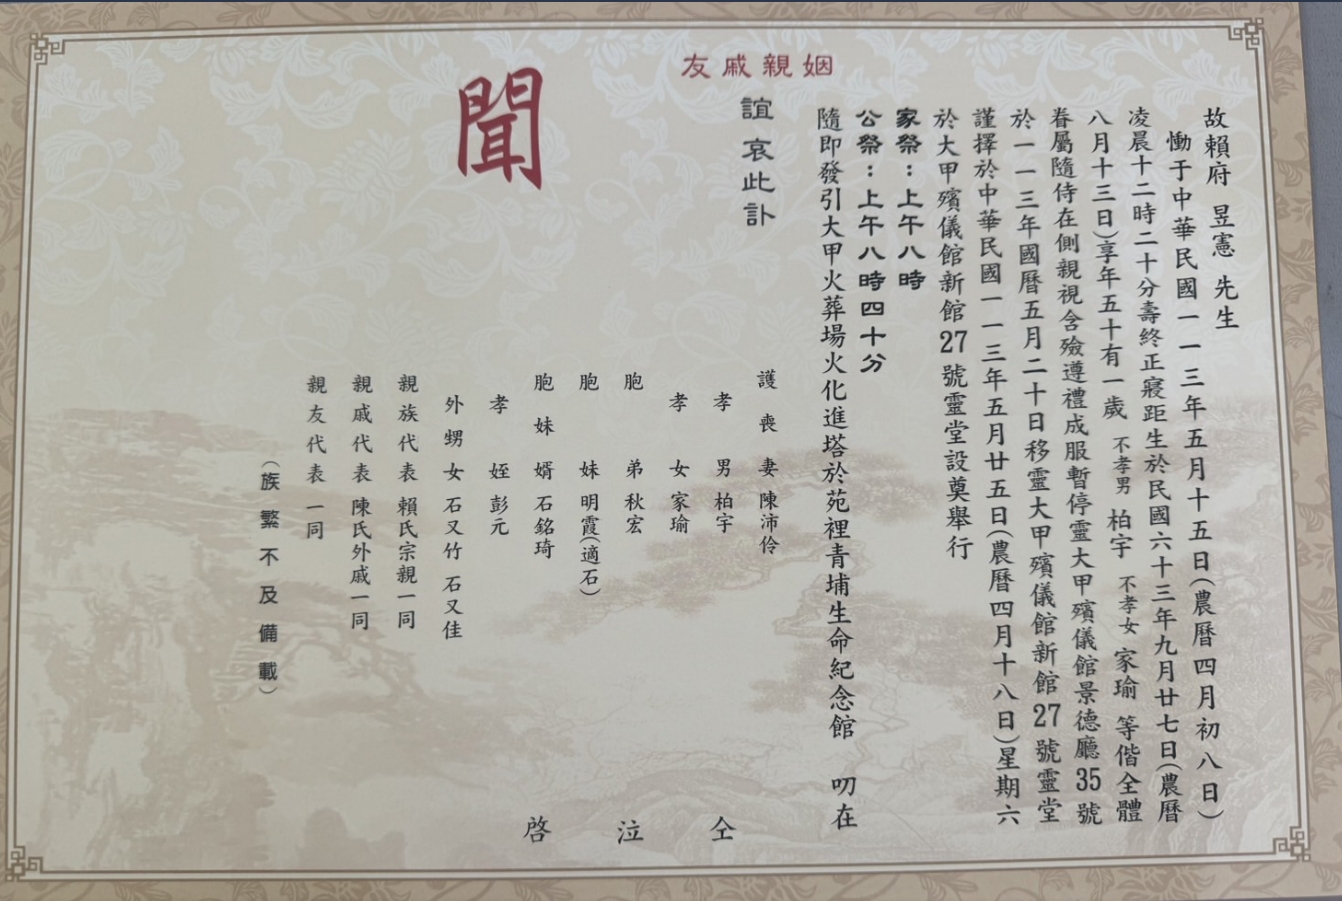 故賴府 昱憲 先生
慟于中華民國一一三年五月十五日(農曆四月初八日)
凌晨十二時二十分壽終正寢距生於民國六十三年九月廿七日(農曆
八月十三日)享年五十有一歲 不孝男 柏宇 不孝女 家瑜 等偕全體
眷屬隨侍在側親視含殮遵禮成服暫停靈大甲殯儀館景德廳35號
於一一三年國曆五月二十日移靈大甲殯儀館新館27號靈堂
謹擇於中華民國一一三年五月廿五日(農曆四月十八日)星期六
於大甲殯儀館新館27號靈堂設奠舉行
家祭：上午八時
公祭：上午八時四十分
隨即發引大甲火葬場火化進塔於苑裡青埔生命紀念館 叨在
姻親戚友
誼哀此訃
聞
護喪妻 陳沛伶
孝男 柏宇
孝女 家瑜
胞弟 秋宏
胞妹 明霞(適石)
胞妹婿 石銘琦
孝姪 彭元
外甥女 石又竹 石又佳
親族代表 賴氏宗親一同
親戚代表 陳氏外戚一同
親友代表 一同
(族繁不及備載)
仝泣啓